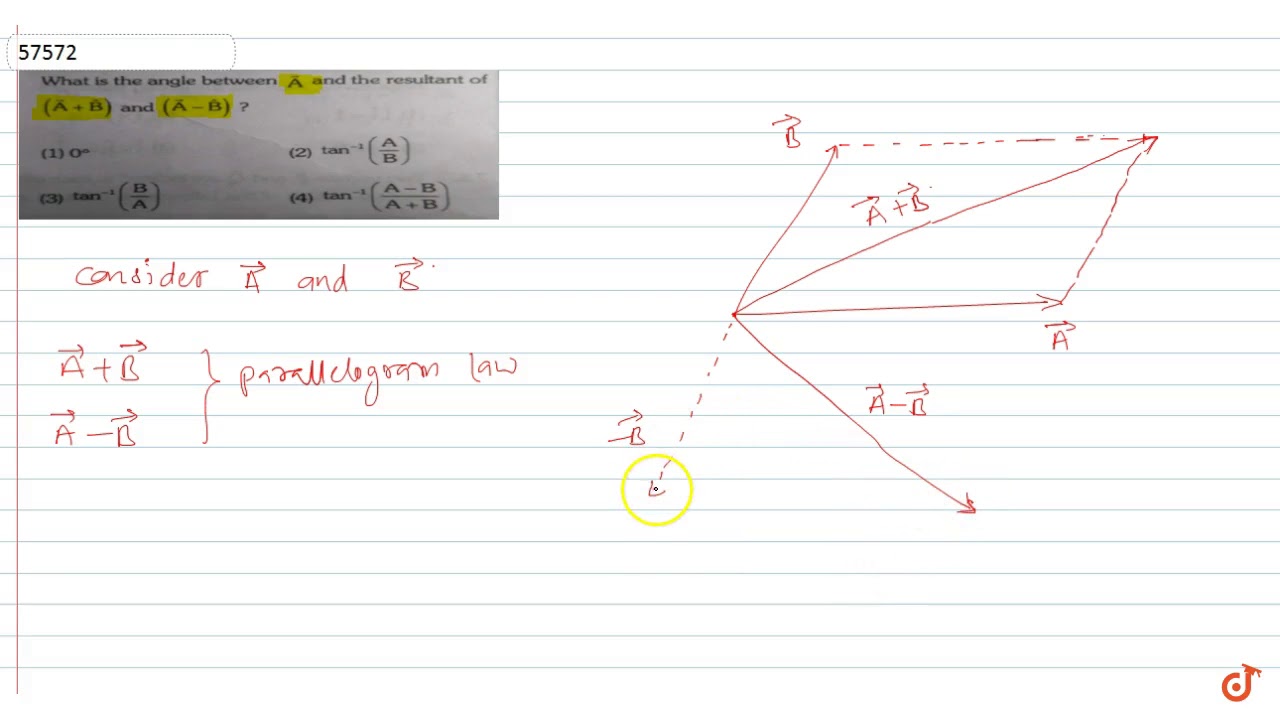 57572
What is the angle between A⃗ and the resultant of
(A⃗ + B⃗) and (A⃗ – B⃗) ?
(1) 0°
(2) tan⁻¹ (A/B)
(3) tan⁻¹ (B/A)
(4) tan⁻¹ (A – B / A + B)
consider A⃗ and B⃗.
A⃗ + B⃗
A⃗ – B⃗
} parallelogram law
B⃗
A⃗ + B⃗
A⃗
A⃗ – B⃗
–B⃗
d